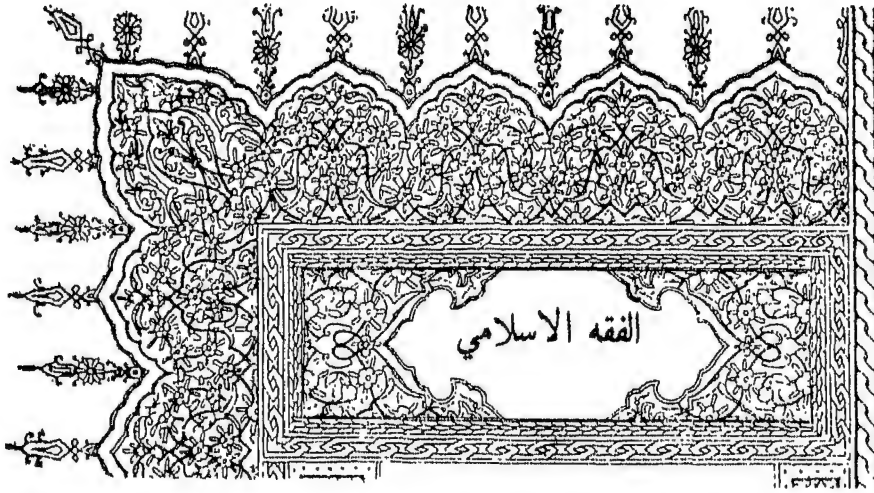 الفقه الاسلامي